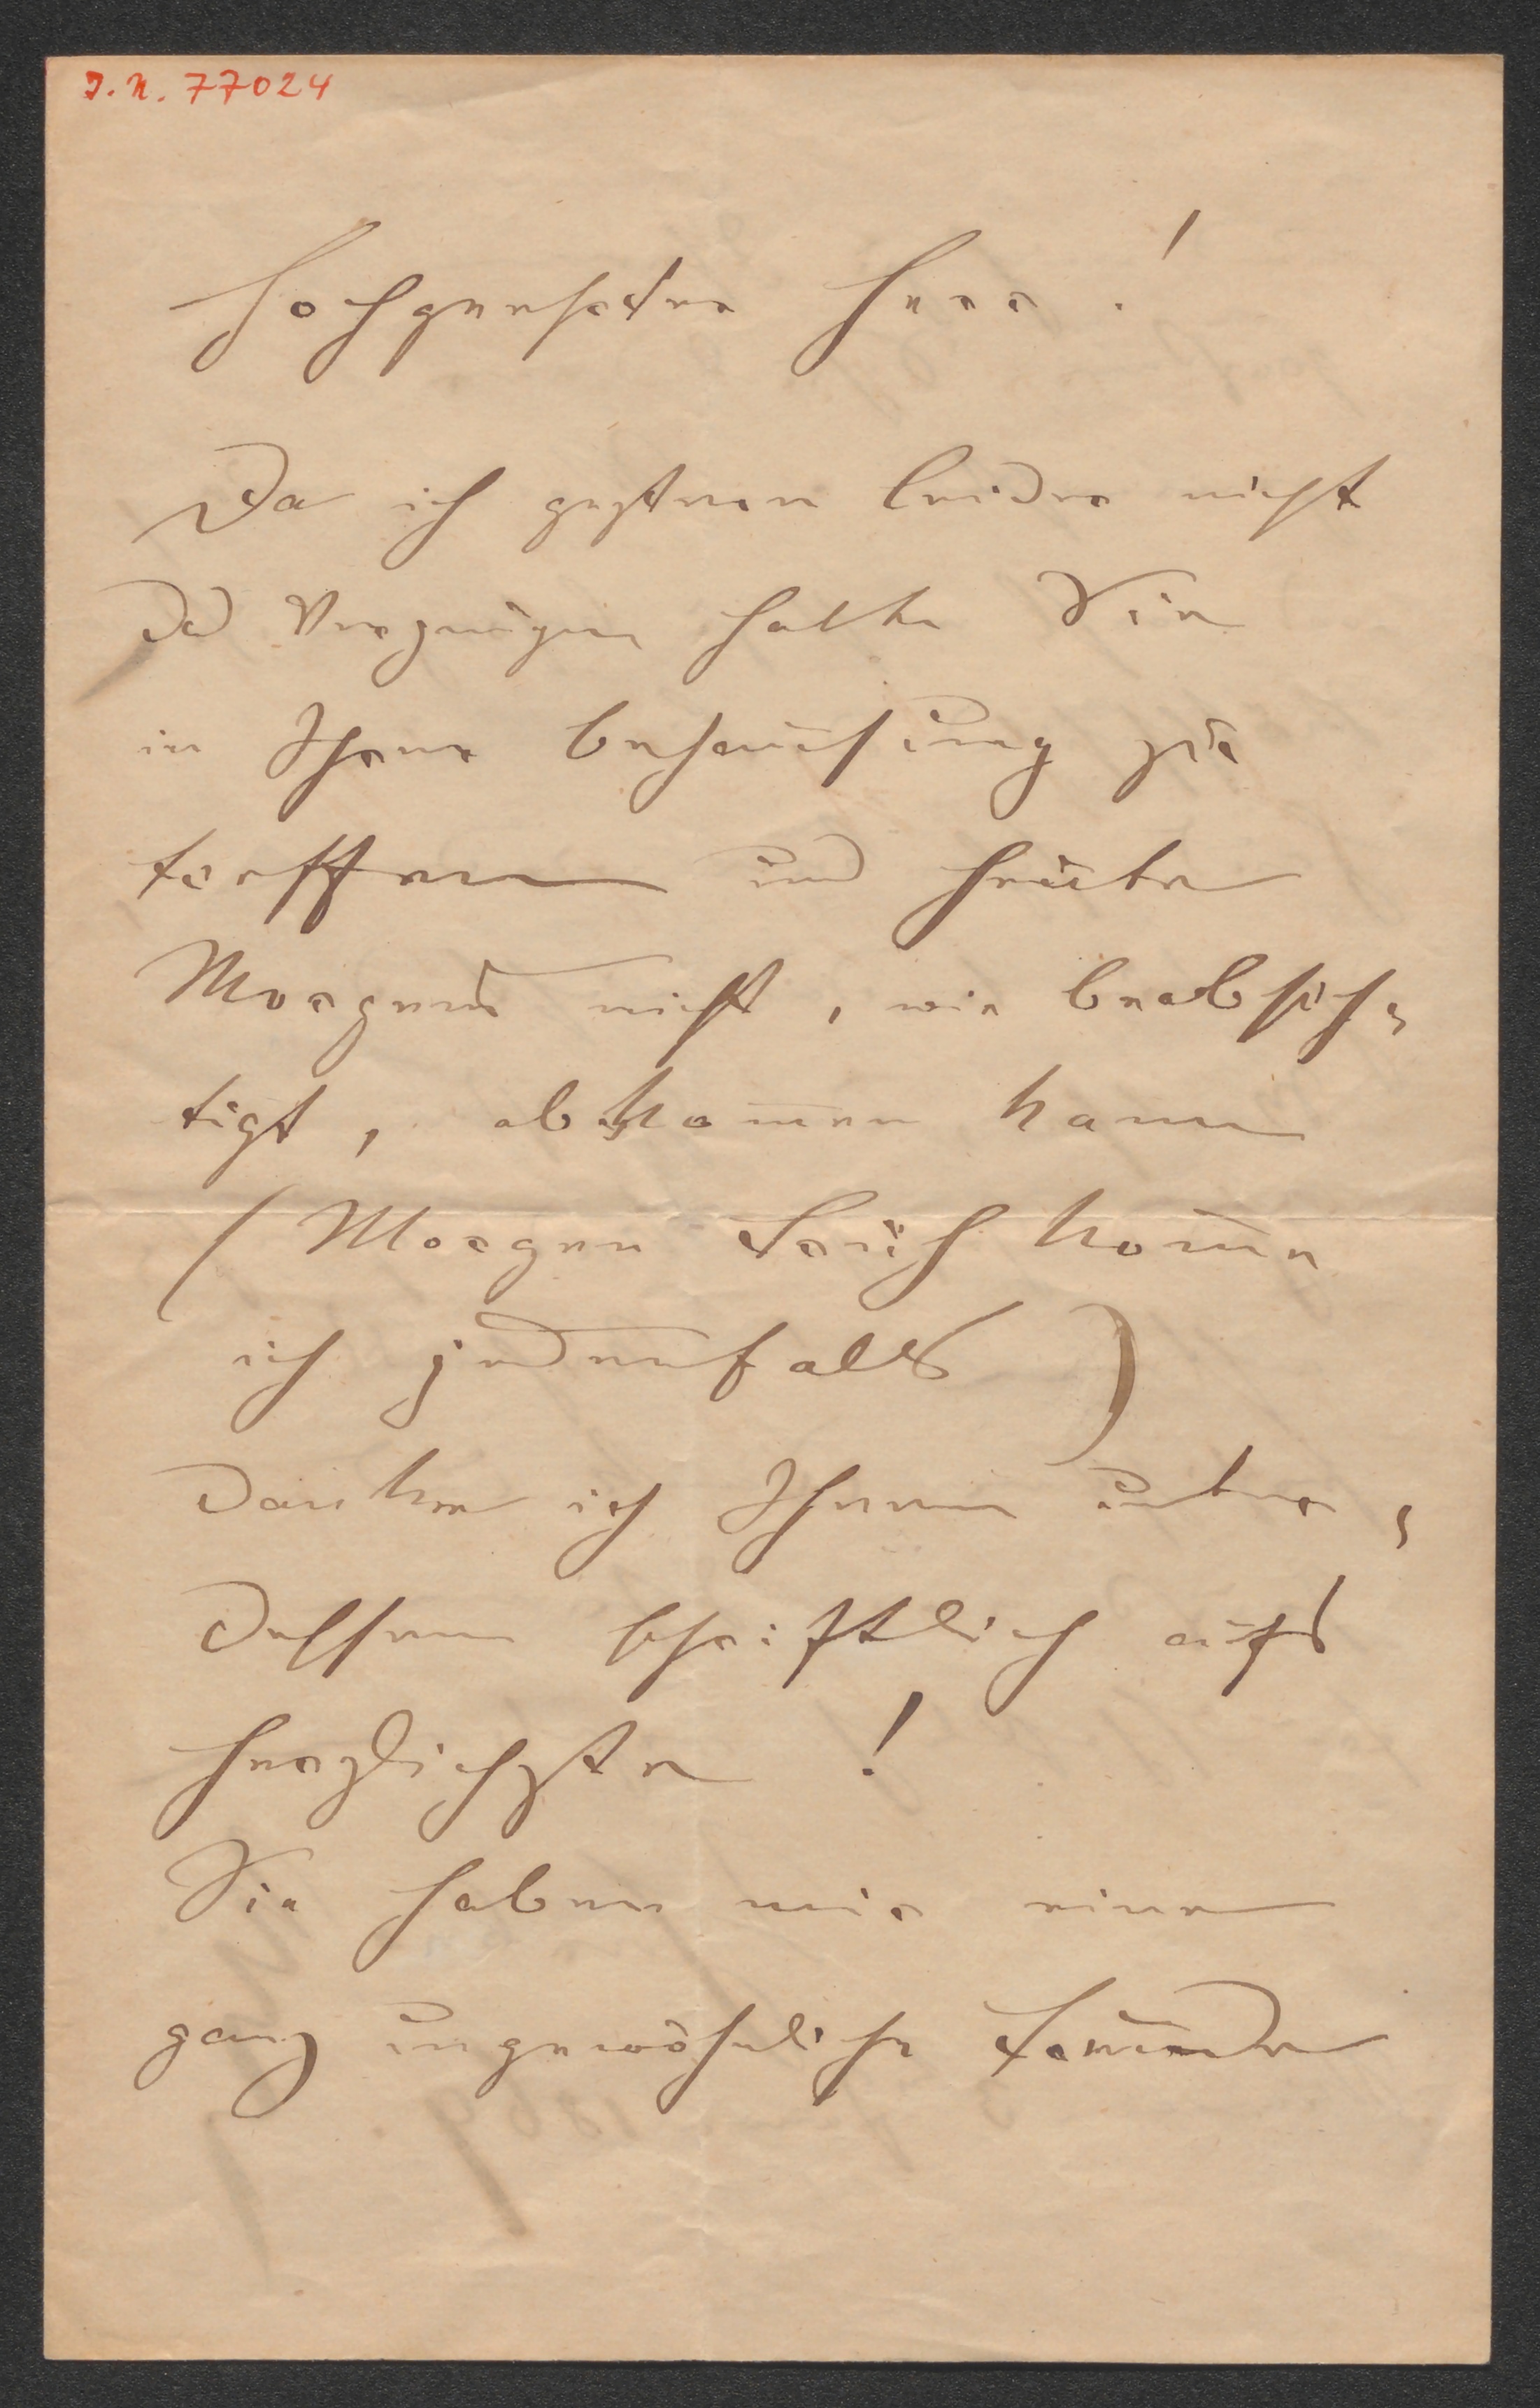 J. N. 77024
Hochgeehrter Herr!
Da ich gestern leider nicht
das Vergnügen hatte Sie
in Ihrer Behausung zu
treffen und heute
Morgens nicht, wie beabsich-
tigt, abkom̅en kann
(Morgen Früh kom̅e
ich jedenfalls)
danke ich Ihnen unter-
dessen schriftlich aufs
herzlichste!
Sie haben mir eine
ganz ungewöhnliche Freude